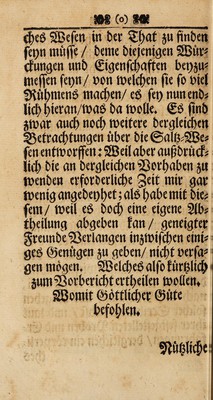 (o)
ches Wesen in der That zu finden
seyn müsse / deme diejenigen Wür-
ckungen und Eigenschafften beyzu-
messen seyn / von welchen sie so viel
Rühmens machen / es sey nun end-
lich hieran / was da wolle. Es sind
zwar auch noch weitere dergleichen
Betrachtungen über die Saltz-We-
sen entworffen: Weil aber außdrück-
lich die an dergleichen Vorhaben zu
wenden erforderliche Zeit mir gar
wenig angedeyhet; als habe mit die-
sem / weil es doch eine eigene Ab-
theilung abgeben kan / geneigter
Freunde Verlangen inzwischen eini-
ges Genügen zu geben / nicht versa-
gen mögen. Welches also kürtzlich
zum Vorbericht ertheilen wollen.
Womit Göttlicher Güte
befohlen.
Nützliche